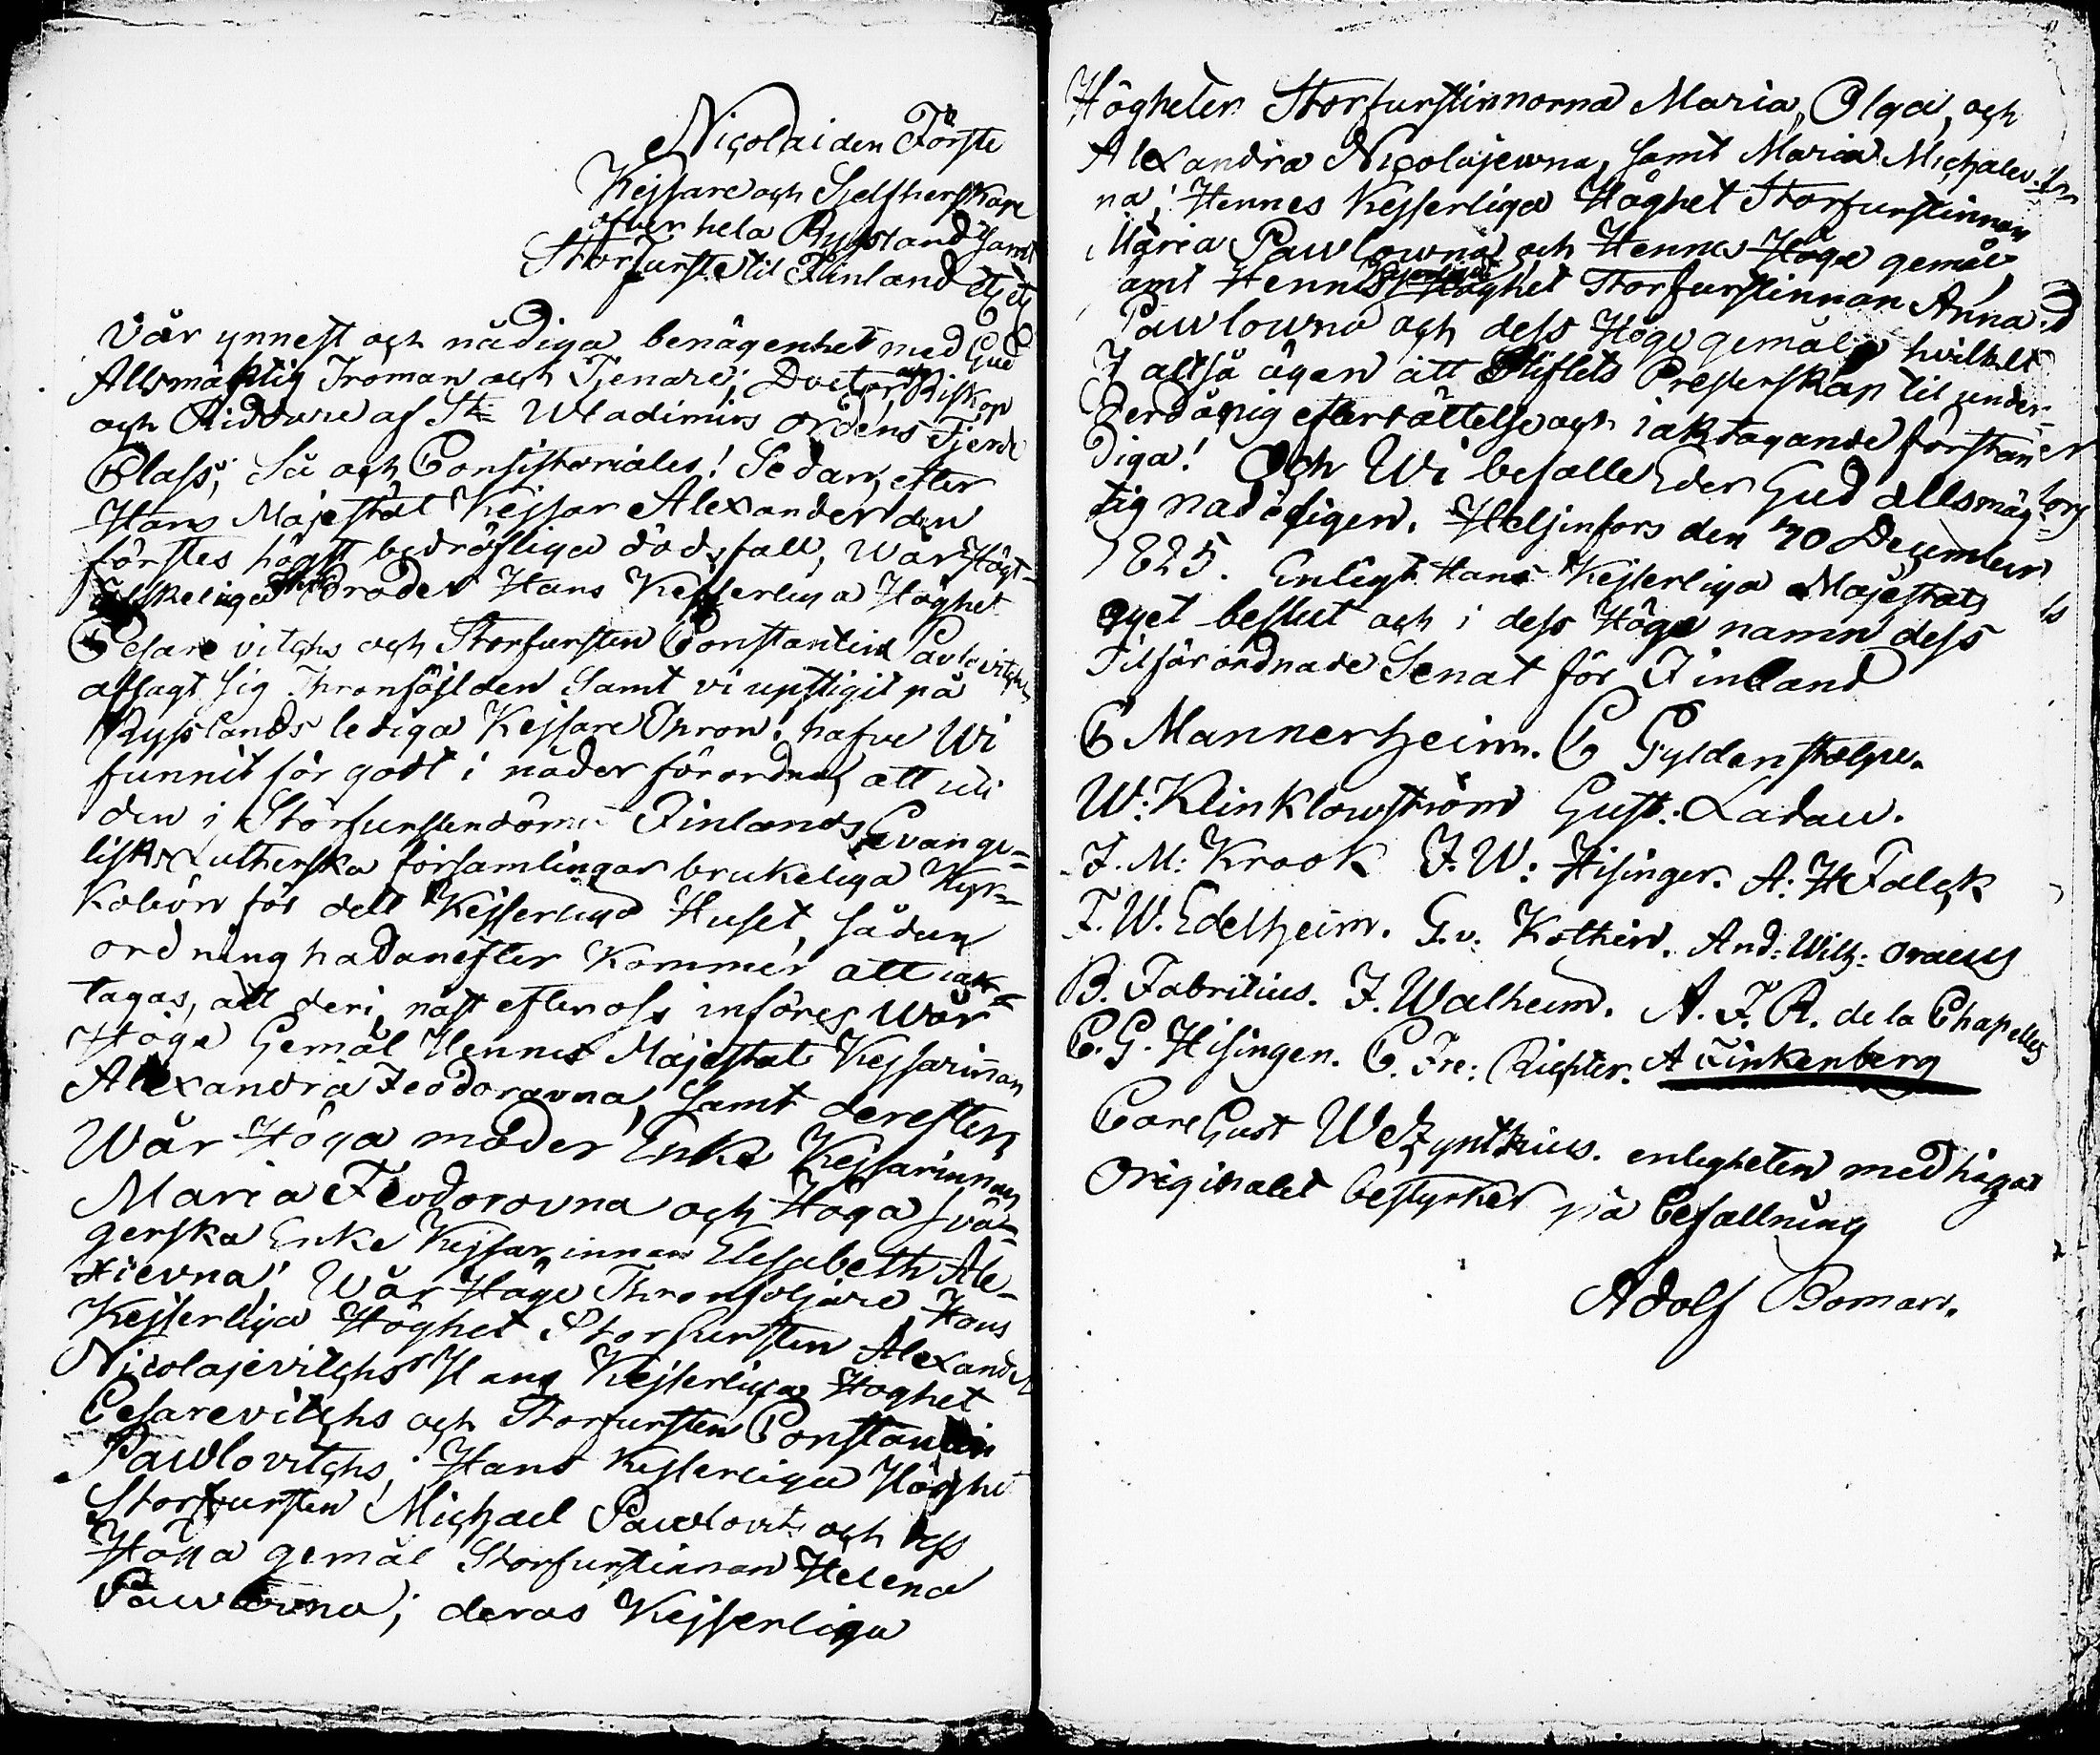 Nicolai den Förste
Kejsare och Sjelfherskare
öfver hela Ryssland samt
Storfurste til Finland etc etc
Vår ynnest och nådiga benägenhet med Gud
Allsmäktig Troman och Tjenare, Doctor och Biskop
och Riddare af St Wladimirs ordens Fjerde
Class; Så och Consistoriales! Sedan, efter
Hans Majestät Kejsar Alexander den
förstes högst bedröfliga dödsfall, Wår Högt-
älskeliga Broder Hans Kejserliga Höghet
Cesarevitchs och Storfursten Constantin Pavlovitchs
afsagt sig Thronföljden Samt vi upstigit på
Rysslands lediga Kejsare Thron! hafve Wi
funnit för godt i nåder förordna, att uti
den i Storfurstendömet Finlands Evange-
lisk Lutherska församlingar brukeliga Kyr-
kobön för det Kejserliga Huset, sådan
ordning hädanefter kommer att iakt-
tagas, att deri, näst efter oss införes Wår
Höga Gemål Hennes Majestät Kejsarinnan
Alexandra Feodoravna, Samt derefter
Wår Höga moder Enke Kejsarinnan
Maria Feodorovna och Höga Svä-
gerska Enke Kejsarinnan Elisabeth Ale-
xievna; Wår Höge Thronföljare Hans
Kejserliga Höghet Storfursten Alexander
Nicolajevitchs Hans Kejserliga Höghet
Cesarevitchs och Storfursten Constantin
Pawlovitchs; Hans Kejserliga Höghet
Storfursten Michael Pawlovits och dess
Höga gemål Storfurstinnan Helena
Pawlovna; deras Kejserliga
Högheter Storfurstinnorna Maria, Olga, och
Alexandra Nicolajewna, samt Maria Michalev-
na; Hennes Kejserliga Höghet Storfurstinnan
Maria Pawlowna och Hennes Höge gemål,
samt Hennes Kejserliga Höghet Storfurstinnan Anna
Pawlowna och dess Höge gemål; hvilket
I altså ägen att Stiftets Presterskap til under-
derdånig efterrättelse och iakttagande förstän
diga! Och Wi befalle Eder Gud allsmäg-
tig nådeligen. Helsinfors den 20 December
1825. Enligt Hans Kejserliga Majestäts
eget beslut och i dess Höga namn dess
Tilförordnade Senat för Finland
C Mannerheim. C Gyldenstolpe.
W: Klinkowström Gust: Ladau.
J. M: Krook J. W: Hisinger. A: H Falck
F. W. Edelheim. G. v. Kothen. And: Wilh: Oraeus
B. Fabritius. J. Walheim. A. F. R. de la Chapelle
C. G. Hisingen. C. Fre: Richter. A Finkenberg
Carl Gust Wetzynthius. enligheten med höga
originalet bestyrker på befallning
Adolf Boman.